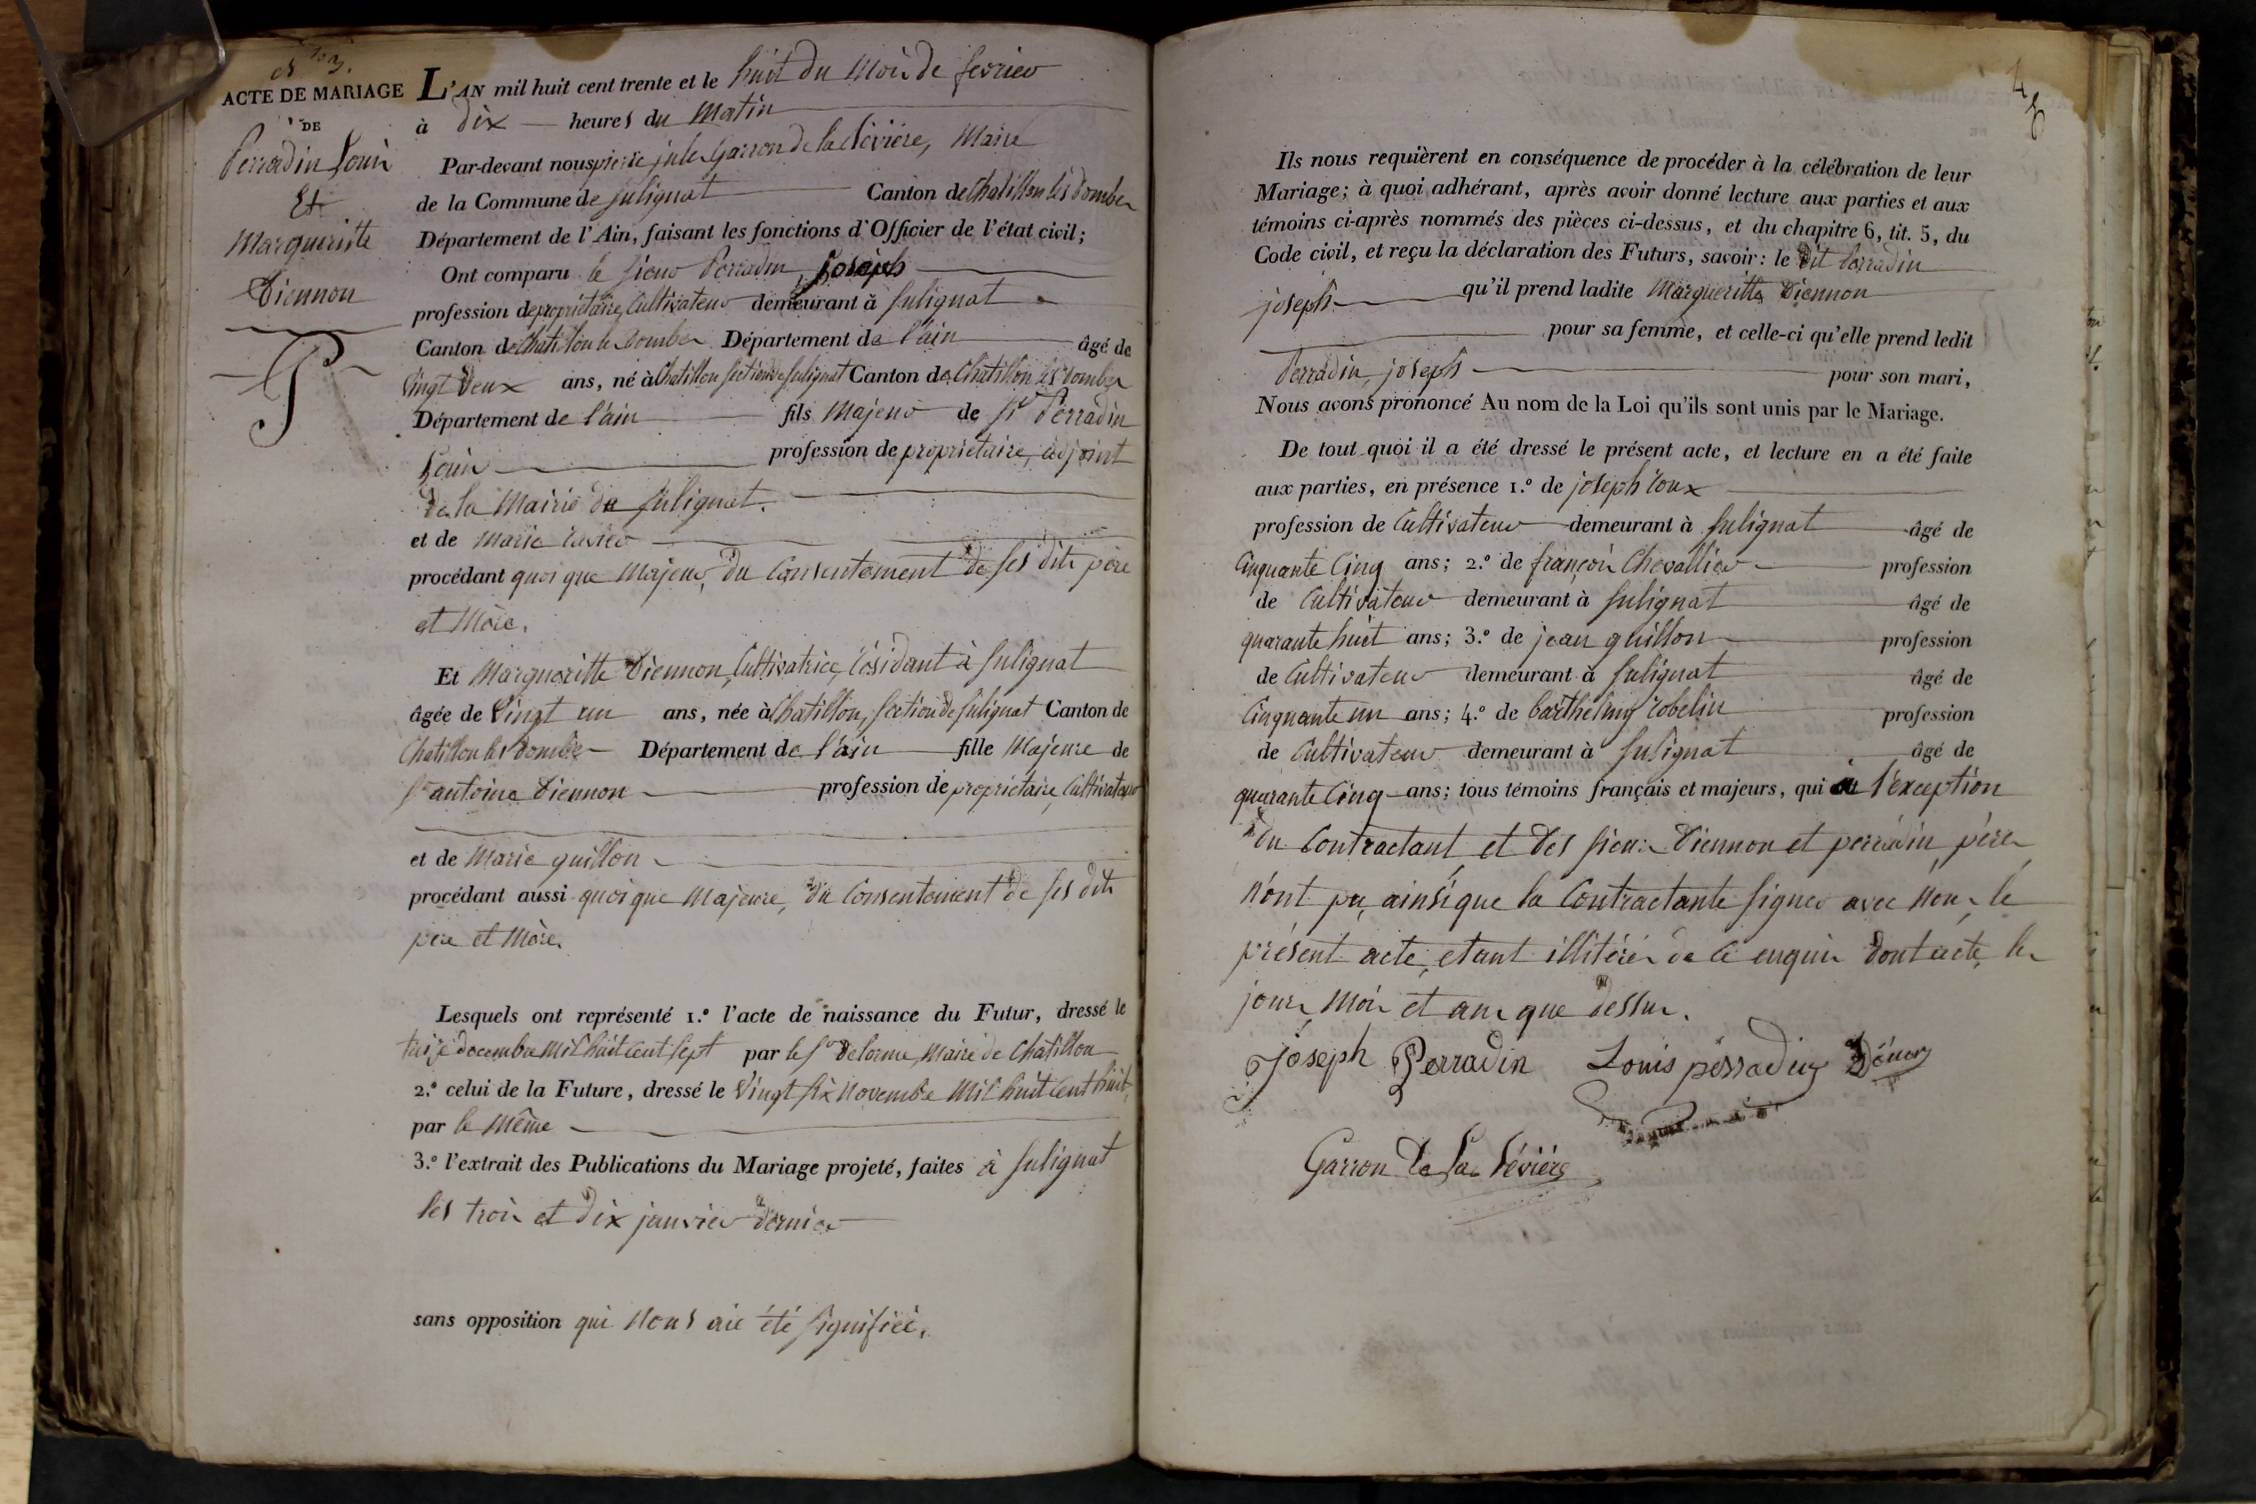 N.º 3.
ACTE DE MARIAGE
DE
Perradin Louis
Et
Margueritte
Diennon
L'AN mil huit cent trente et le huit du Mois de fevrier
à dix heures du Matin
Par-devant nous pierre jules Garron de la Bévière, Maire
de la Commune de Sulignat Canton de Chatillon les Dombes
Département de l'Ain, faisant les fonctions d'Officier de l'état civil;
Ont comparu le sieur Perradin, joseph
profession de propriétaire, Cultivateur demeurant à Sulignat
Canton de Chatillon les Dombes Département de l'ain âgé de
Vingt Deux ans, né à Chatillon section de Sulignat Canton de Chatillon les Dombes
Département de l'ain fils Majeur de Sr Perradin
Louis profession de propriétaire, adjoint
de la Mairie de Sulignat.
et de Marie ravier
procédant quoique Majeur, du Consentement de ses dits père
et Mère.
Et Margueritte Diennon, Cultivatrice, résidant à Sulignat
âgée de Vingt un ans, née à Chatillon, section de Sulignat Canton de
Chatillon les Dombes Département de l'ain fille Majeure de
Sr antoine Diennon profession de propriétaire, Cultivateur
et de Marie guillon
procédant aussi quoique Majeure, du Consentement de ses dits
père et Mère.
Lesquels ont représenté 1.º l'acte de naissance du Futur, dressé le
treize decembre Mil huit Cent sept par le Sr Delorme, Maire de Chatillon
2.º celui de la Future, dressé le Vingt six Novembre Mil huit Cent huit,
par le Même
3.º l'extrait des Publications du Mariage projeté, faites à Sulignat
les trois et dix janvier dernier
sans opposition qui Nous aie été signifiée.
Ils nous requièrent en conséquence de procéder à la célébration de leur
Mariage; à quoi adhérant, après avoir donné lecture aux parties et aux
témoins ci-après nommés des pièces ci-dessus, et du chapitre 6, tit. 5, du
Code civil, et reçu la déclaration des Futurs, savoir: le dit Perradin
joseph qu'il prend ladite Margueritte Diennon
pour sa femme, et celle-ci qu'elle prend ledit
Perradin, joseph pour son mari,
Nous avons prononcé Au nom de la Loi qu'ils sont unis par le Mariage.
De tout quoi il a été dressé le présent acte, et lecture en a été faite
aux parties, en présence 1.º de joseph roux
profession de Cultivateur demeurant à Sulignat âgé de
Cinquante Cinq ans; 2.º de françois Chevallier profession
de Cultivateur demeurant à Sulignat âgé de
quarante huit ans; 3.º de jean guillon profession
de Cultivateur demeurant à Sulignat âgé de
Cinquante un ans; 4.º de barthelmy robelin profession
de Cultivateur demeurant à Sulignat âgé de
quarante Cinq ans; tous témoins français et majeurs, qui à l'exception
du Contractant et des sieurs Diennon et perradin, pères
n'ont pu, ainsi que la Contractante signer avec Nous le
présent acte, etant illitérés de ce enquis dont acte, les
jour, Mois et an que dessus.
joseph Perradin Louis perradin
Garron De La Bévière